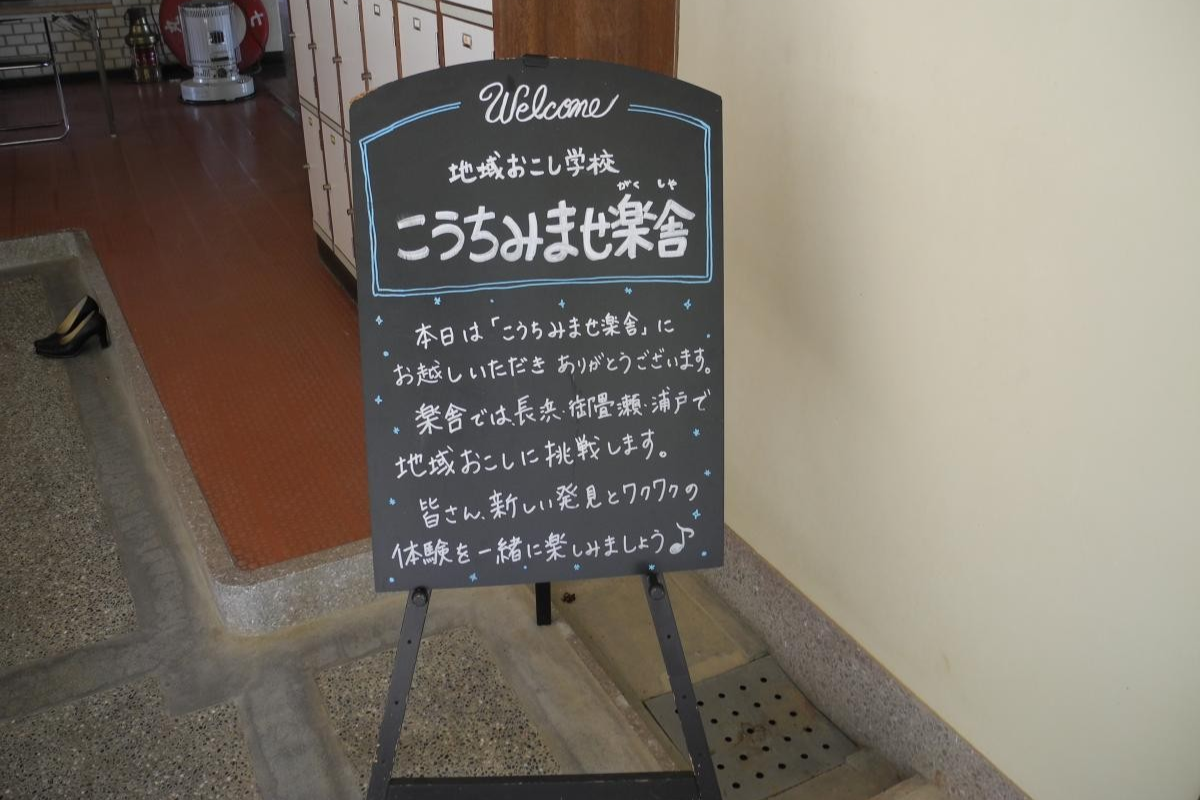 Welcome
地域おこし学校
がくしゃ
こうちみませ楽舎
本日は「こうちみませ楽舎」に
お越しいただき ありがとうございます。
楽舎では、長浜・御畳瀬・浦戸で
地域おこしに挑戦します。
皆さん、新しい発見とワクワクの
体験を一緒に楽しみましょう♪